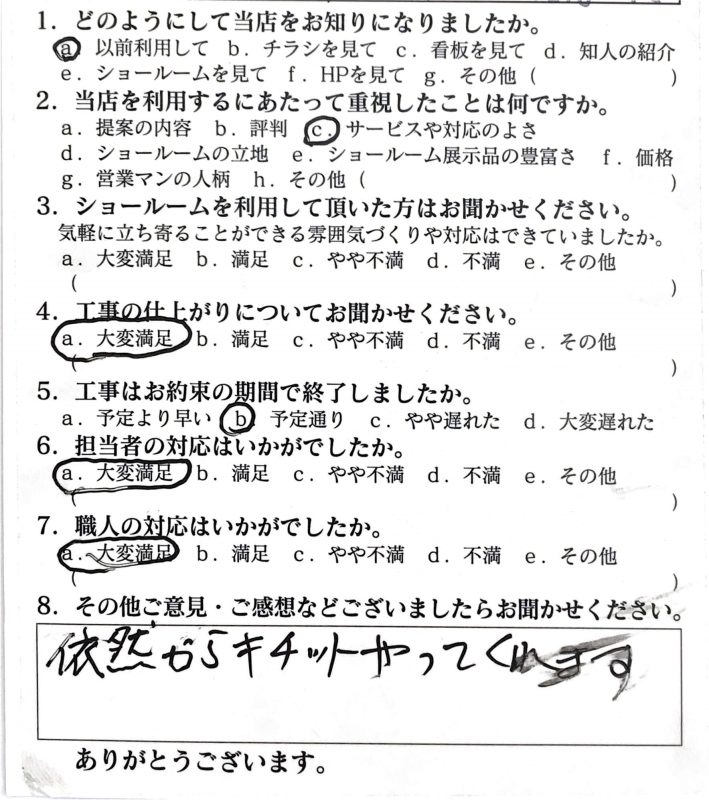 1. どのようにして当店をお知りになりましたか。
a 以前利用して b. チラシを見て c. 看板を見て d. 知人の紹介
e. ショールームを見て f. HPを見て g. その他 ( )
2. 当店を利用するにあたって重視したことは何ですか。
a. 提案の内容 b. 評判 c. サービスや対応のよさ
d. ショールームの立地 e. ショールーム展示品の豊富さ f. 価格
g. 営業マンの人柄 h. その他 ( )
3. ショールームを利用して頂いた方はお聞かせください。
気軽に立ち寄ることができる雰囲気づくりや対応はできていましたか。
a. 大変満足 b. 満足 c. やや不満 d. 不満 e. その他
( )
4. 工事の仕上がりについてお聞かせください。
a. 大変満足 b. 満足 c. やや不満 d. 不満 e. その他
( )
5. 工事はお約束の期間で終了しましたか。
a. 予定より早い b 予定通り c. やや遅れた d. 大変遅れた
6. 担当者の対応はいかがでしたか。
a. 大変満足 b. 満足 c. やや不満 d. 不満 e. その他
( )
7. 職人の対応はいかがでしたか。
a. 大変満足 b. 満足 c. やや不満 d. 不満 e. その他
( )
8. その他ご意見・ご感想などございましたらお聞かせください。
依然からキチットやってくれます
ありがとうございます。